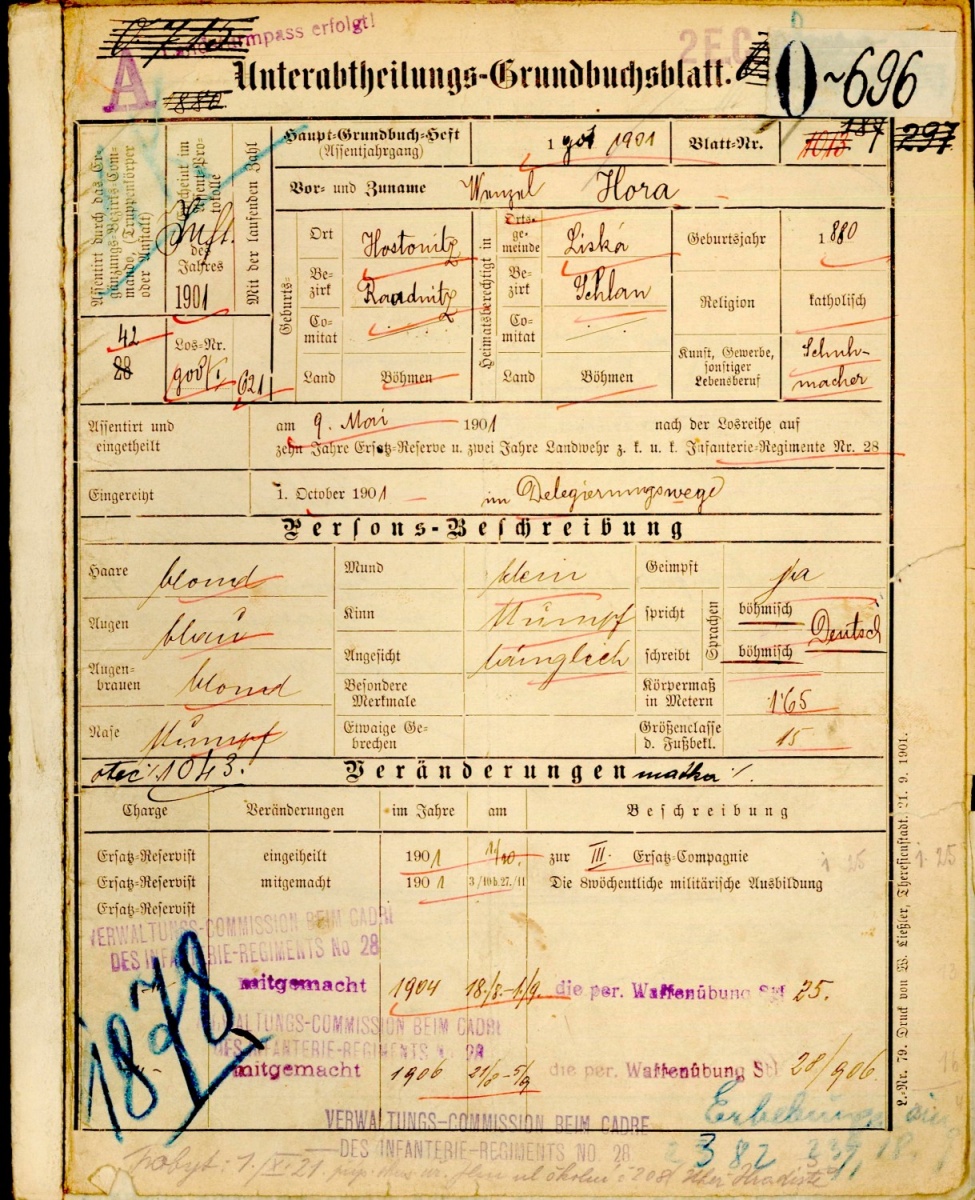 Landsturmpass erfolgt!
A
880
Unterabtheilungs-Grundbuchsblatt.
0-696
Assentirt durch das Ergänzungs-Bezirks-Commando, (Truppenkörper oder Anstalt)
Erscheint im Assent-Protokolle
des Jahres
1901
Mit der laufenden Zahl
42
28
Los-Nr.
621
Haupt-Grundbuch-Heft
(Assentjahrgang)
1 1901
Blatt-Nr.
1013
187
297
Vor- und Zuname Wenzel Hora
Geburts-
Ort Hostonitz
Bezirk Raudnitz
Comitat
Land Böhmen
Heimatsberechtigt in
Ortsgemeinde Liská
Bezirk Schlan
Comitat
Land Böhmen
Geburtsjahr 1880
Religion katholisch
Kunst, Gewerbe, sonstiger Lebensberuf Schuhmacher
Assentirt und eingetheilt
am 9. Mai 1901 nach der Losreihe auf
zehn Jahre Ersatz-Reserve u. zwei Jahre Landwehr z. k. u. k. Infanterie-Regimente Nr. 28
Eingereiht 1. October 1901 im Delegierungswege
Persons-Beschreibung
Haare blond
Augen blau
Augenbrauen blond
Nase stumpf
Mund klein
Kinn stumpf
Angesicht länglich
Besondere Merkmale
Etwaige Gebrechen
Geimpft ja
Sprachen
spricht böhmisch
schreibt böhmisch
Deutsch
Körpermaß in Metern 1·65
Größenclasse d. Fußbekl. 15
otec 1043.
Veränderungen
matka
Charge Veränderungen im Jahre am Beschreibung
Ersatz-Reservist eingeiheilt 1901 1/10. zur III. Ersatz-Compagnie
Ersatz-Reservist mitgemacht 1901 3/10 b. 27./11 Die 8wöchentliche militärische Ausbildung
Ersatz-Reservist
VERWALTUNGS-COMMISSION BEIM CADRE
DES INFANTERIE-REGIMENTS No 28
mitgemacht 1904 18./8.-1./9. die per. Waffenübung 25.
VERWALTUNGS-COMMISSION BEIM CADRE
DES INFANTERIE-REGIMENTS No 28
mitgemacht 1906 die per. Waffenübung 28/906.
1878
VERWALTUNGS-COMMISSION BEIM CADRE
DES INFANTERIE-REGIMENTS NO. 28
L.-Nr. 79. Druck von W. Ließler, Theresienstadt. 21. 9. 1901.